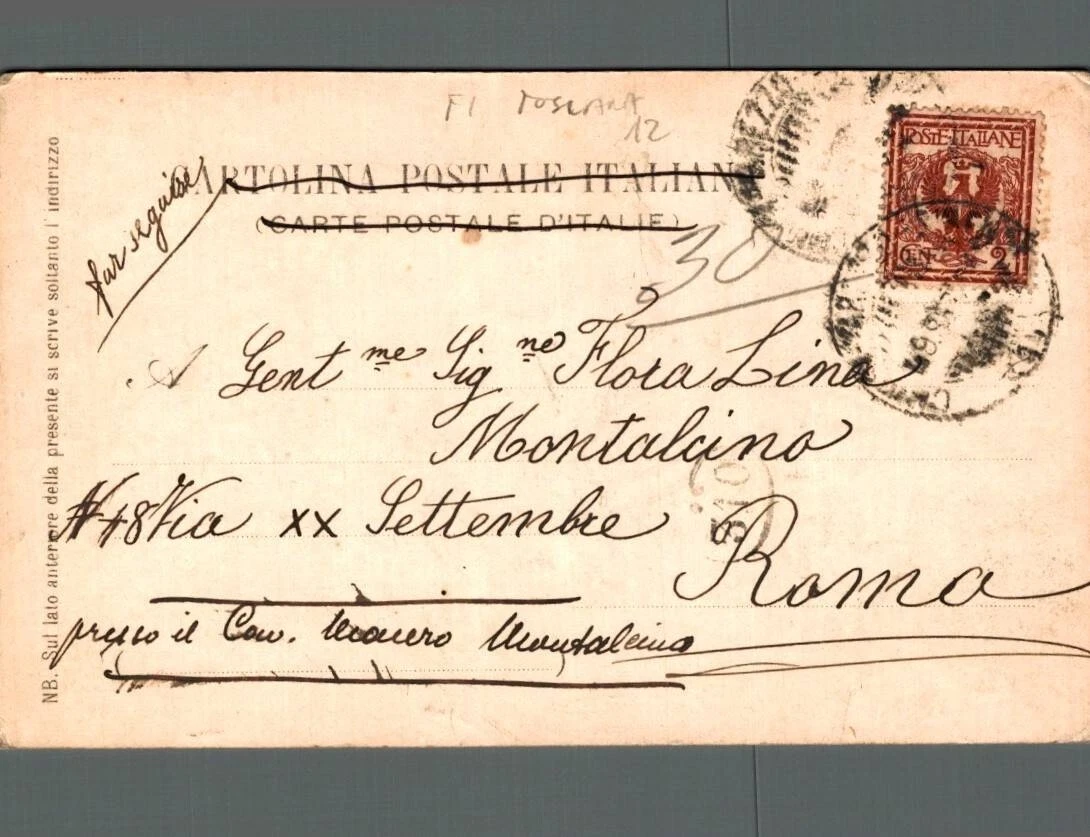 FI TOSCANA
12
CARTOLINA POSTALE ITALIANA
(CARTE POSTALE D'ITALIE)
far seguire
30
POSTE·ITALIANE
CEN. 2
AREZZO
A Gent me Sig ne Flora Lina
Montalcino
Via XX Settembre
Roma
presso il Cav. Montalcino
510
NB. Sul lato anteriore della presente si scrive soltanto l'indirizzo